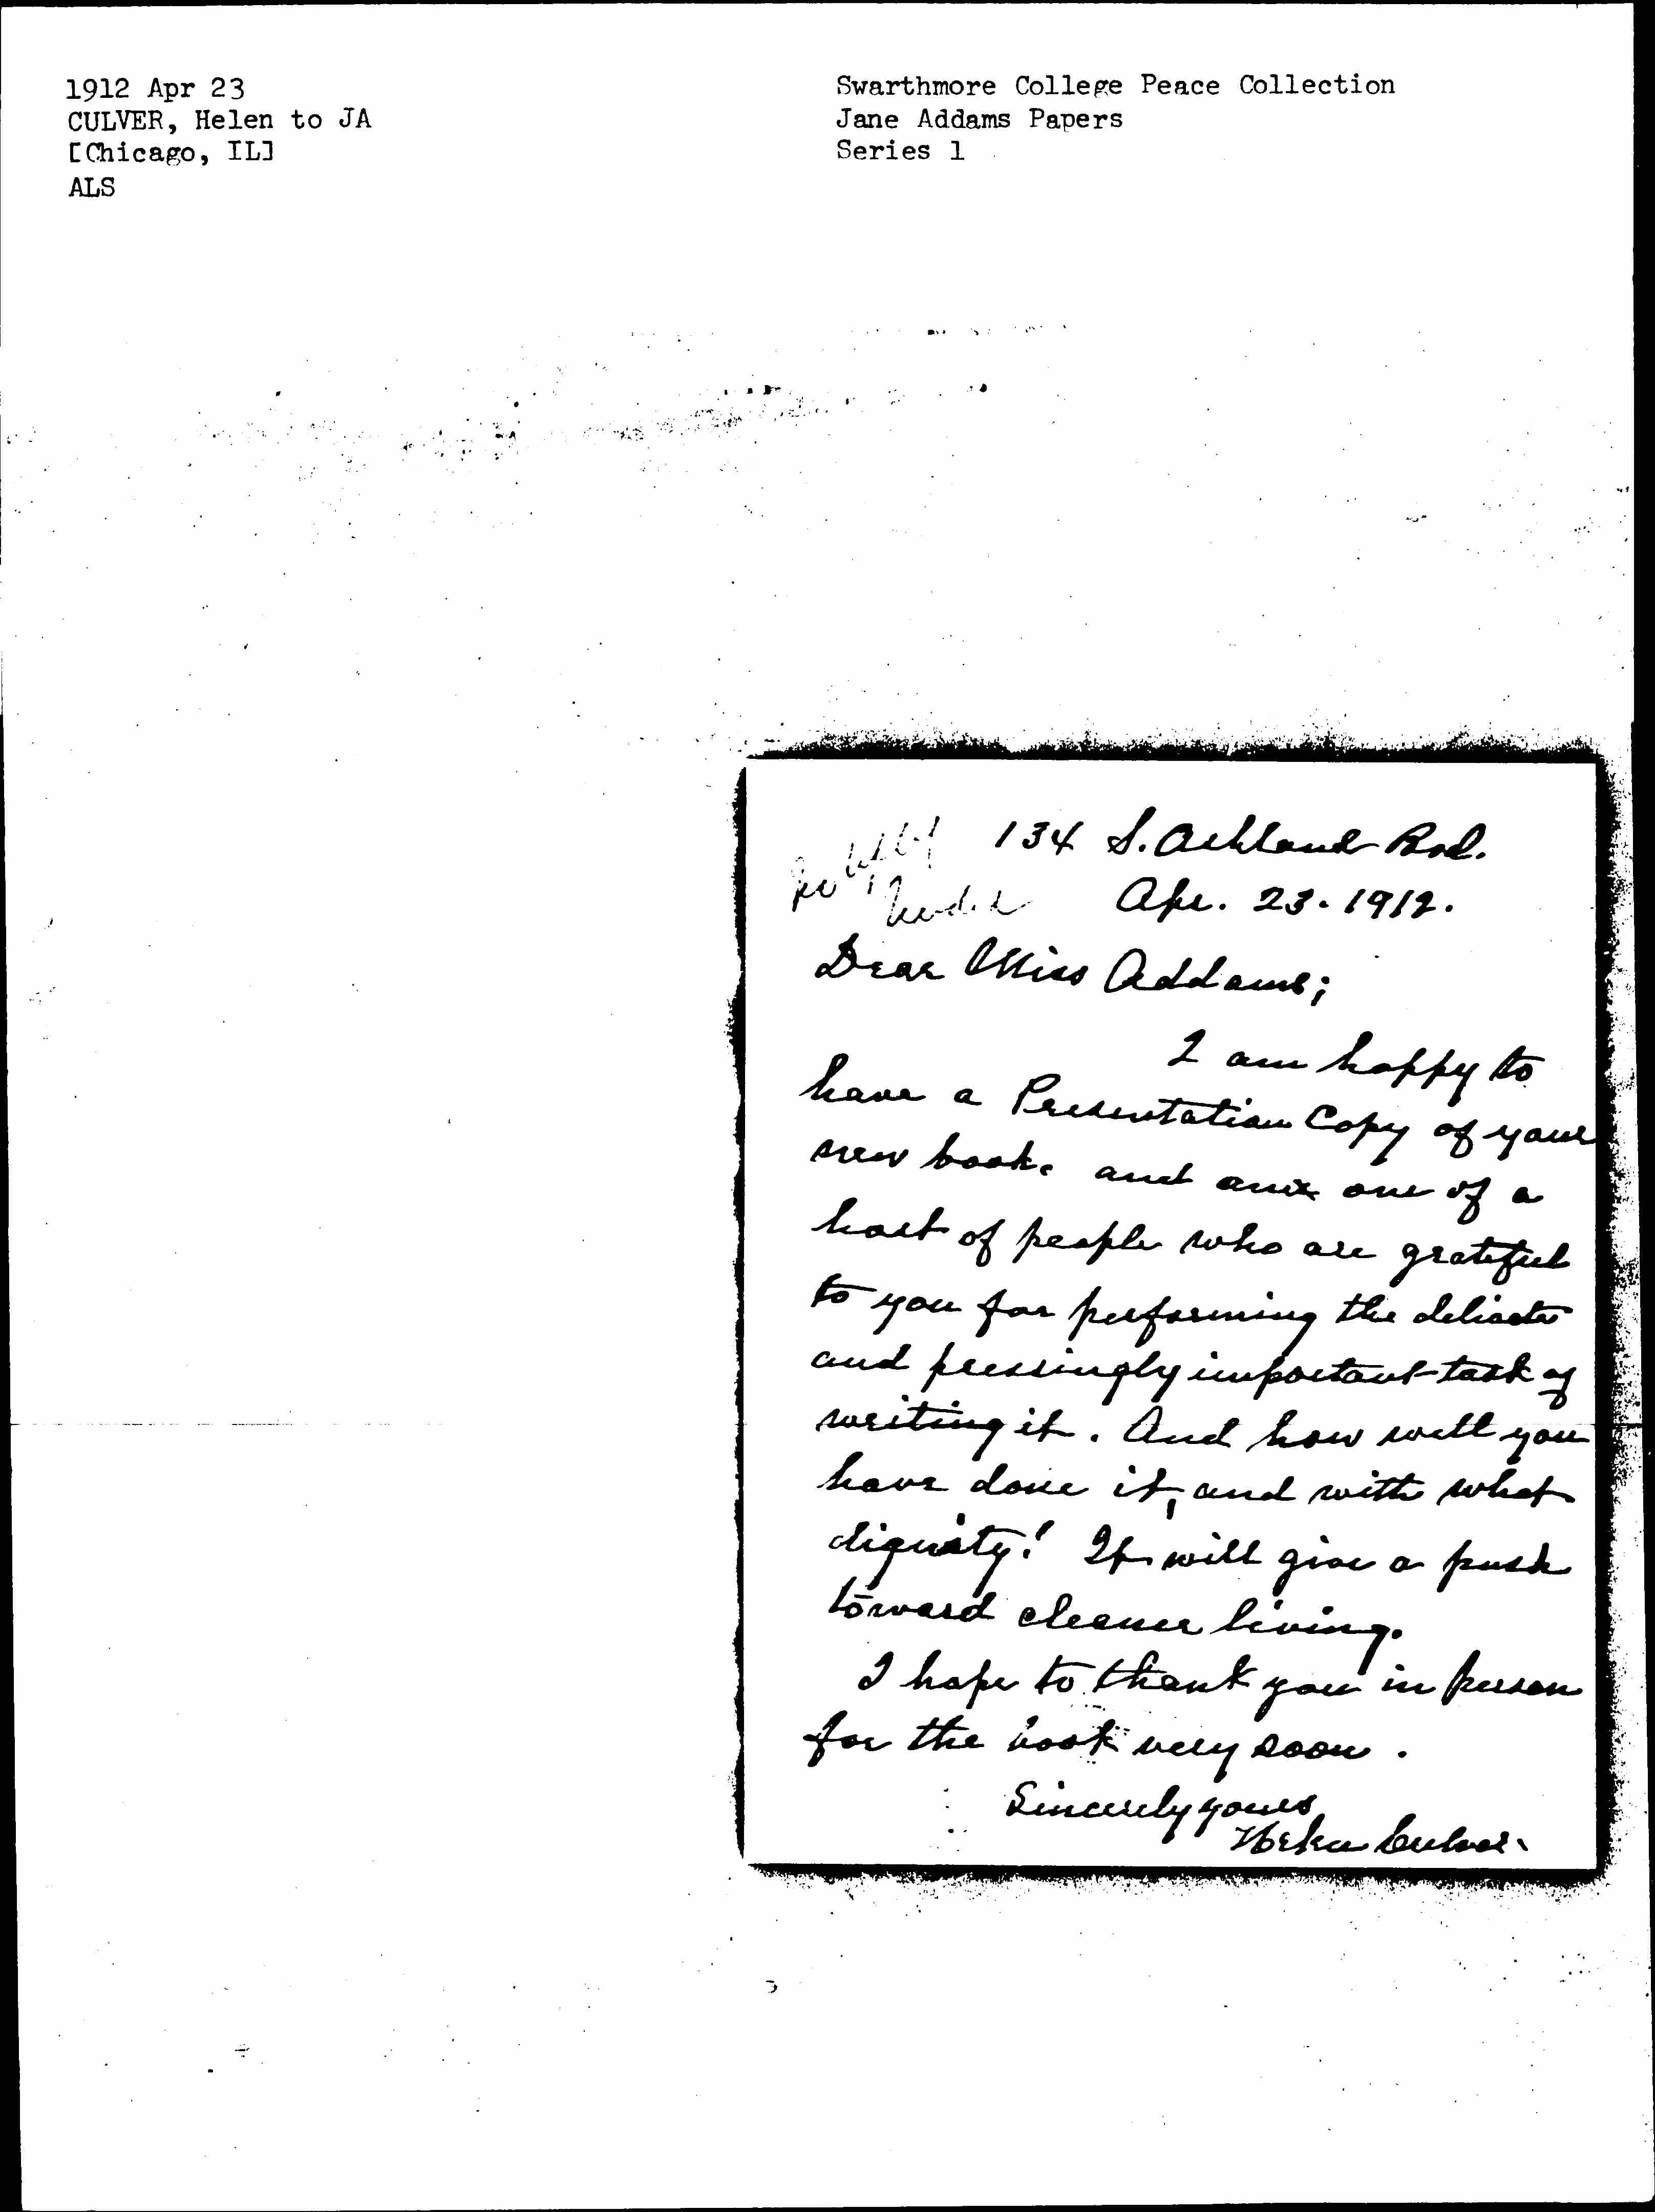 1912 Apr 23
CULVER, Helen to JA
[Chicago, IL]
ALS
Swarthmore College Peace Collection
Jane Addams Papers
Series 1
134 S. Ashland Bod.
Apr. 23. 1912.
Dear Miss Addams;
I am happy to
have a Presentation Copy of your
new book. and am one of a
host of people who are grateful
to you for performing the delicate
and pressingly important task of
writing it. And how well you
have done it, and with what
dignity! It will give a push
toward cleaner living.
I hope to thank you in person
for the book very soon.
Sincerely yours
Helen Culver.